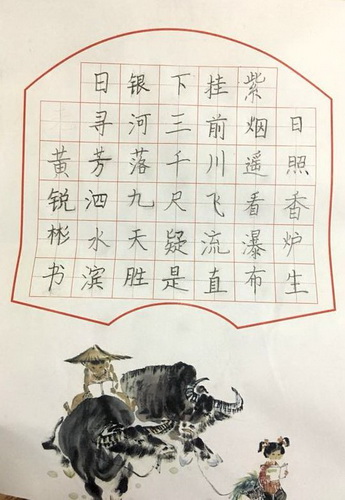 日照香炉生
紫烟遥看瀑布
挂前川飞流直
下三千尺疑是
银河落九天胜
日寻芳泗水滨
黄锐彬书